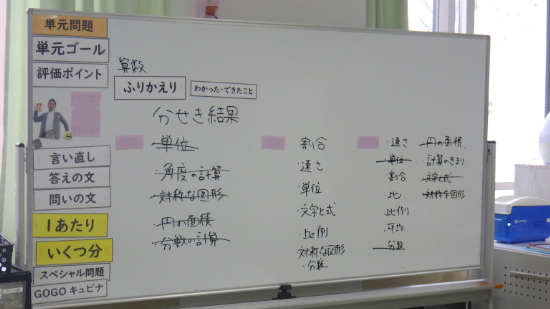 単元問題
単元ゴール
評価ポイント
言い直し
答えの文
問いの文
1あたり
いくつ分
スペシャル問題
GOGO キュビナ
算数
ふりかえり
わかった・できたこと
分せき結果
単位
・角度の計算
・対称な図形
・円の面積
・分数の計算
割合
・速さ
・単位
・文字と式
・比例
対称な図形
・分数
・速さ
・単位
割合
・比
・比例
・平均
・分数
・円の面積
・計算のきまり
・文字と式
・対称な図形